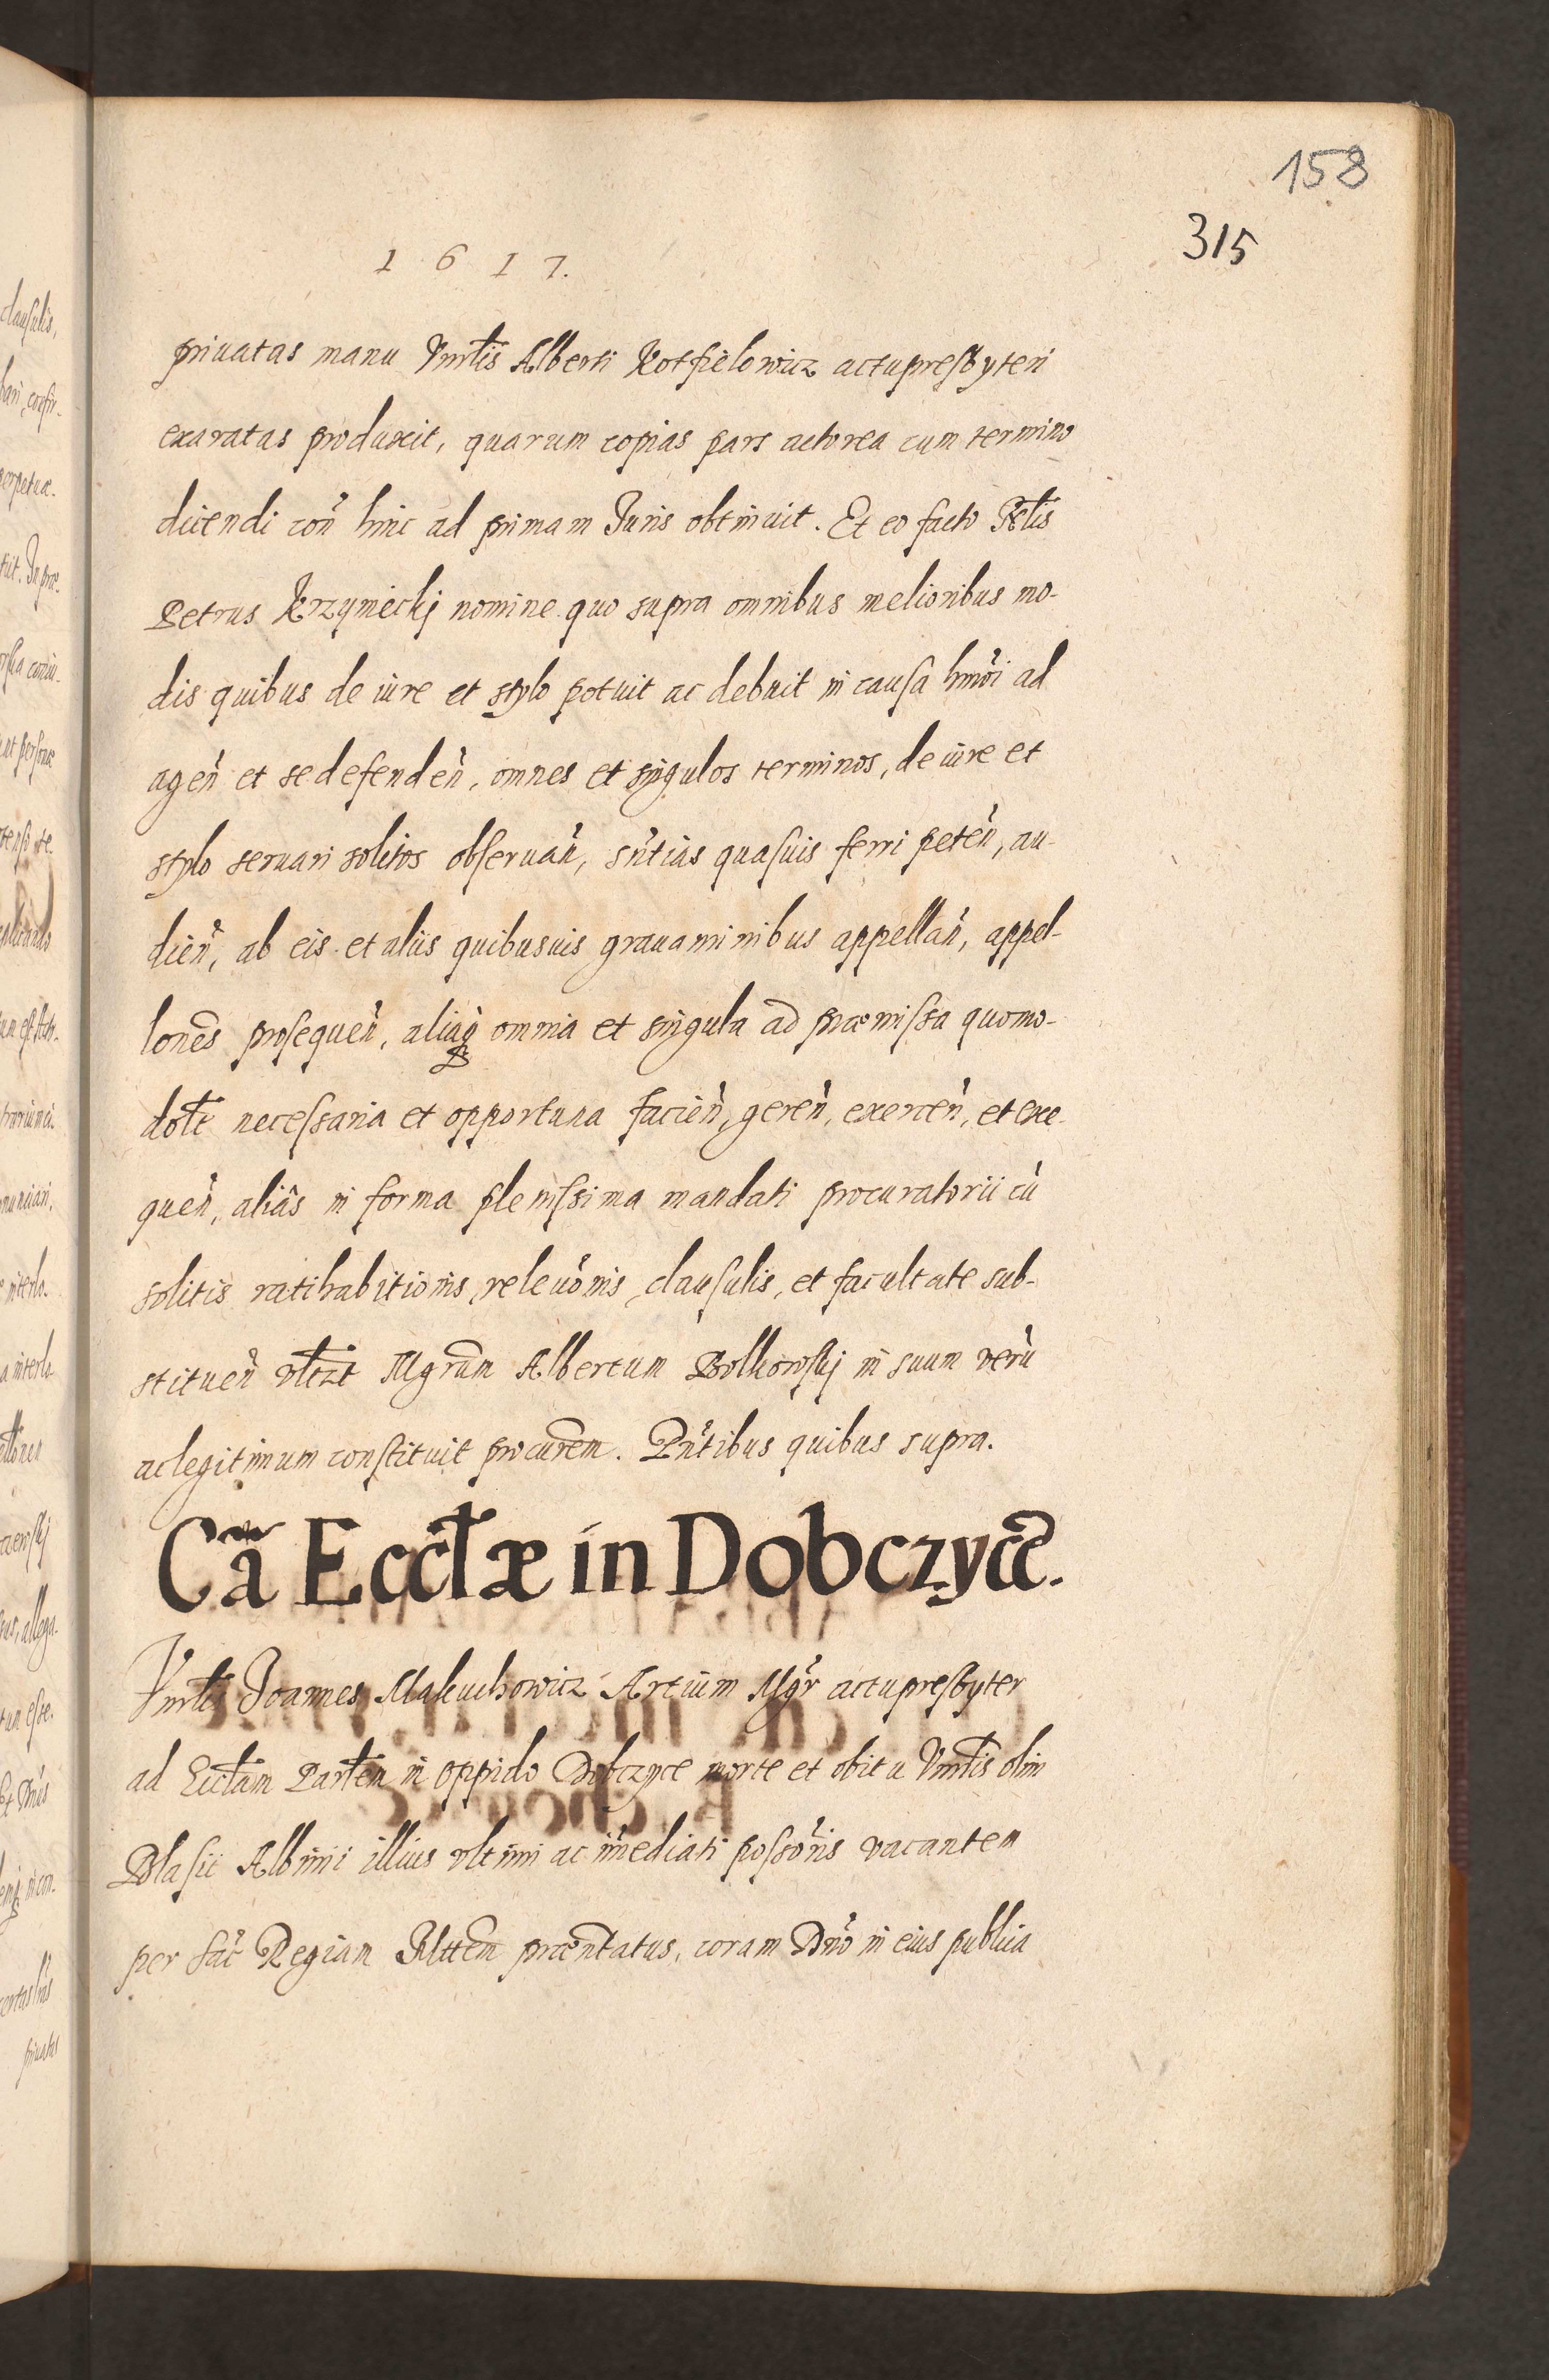 158
315
1 6 1 7.
priuatas manu Vnrłis Alberti Kotfielowicz actupresbyteri
exaratas produxit, quarum copias pars actorea cum termino
dicendi coñ hinc ad primam Juris obtinuit. Et eo facto
Petrus Krzymeckj nomine quo supra omnibus melioribus mo-
dis quibus de iure et stylo potuit ac debuit in causa hmõi ad
ageñ et se defendeñ, omnes et singulos terminos, de iure et
stylo seruari solitos obseruañ, sñtias quasuis ferri peteñ, au-
dieñ, ab eis et aliis quibusuis grauaminibus appellañ, appel-
lões prosequeñ, aliaq̃ omnia et singula ad præmissa quomo-
dołt necessaria et opportuna facieñ, gereñ, exerceñ, et exe-
queñ, aliâs in forma plenissima mandati procuratorii cũ
solitis ratihabitionis, releuõnis, clausulis, et facultate sub-
stitueñ vłtzt Mgrũm Albertum Bolkowskj in suum verũ
ac legitimum constituit procurẽm. Pñtibus quibus supra.
Cã Eccłæ in Dobczycẽ.
Vnrłis Joannes Makuchowicz Artium Mgr̃ actupresbyter
ad Eccłam Parłem in oppido Dobczyce morte et obitu Vnrłis olim
Blasii Albini illius vltimi ac im̃ediati possõris vacantem
per Sac̃ Regiam Mttẽm præñtatus, coram Dnõ in eius publica
clausulis,
perpetuæ.
priuatas